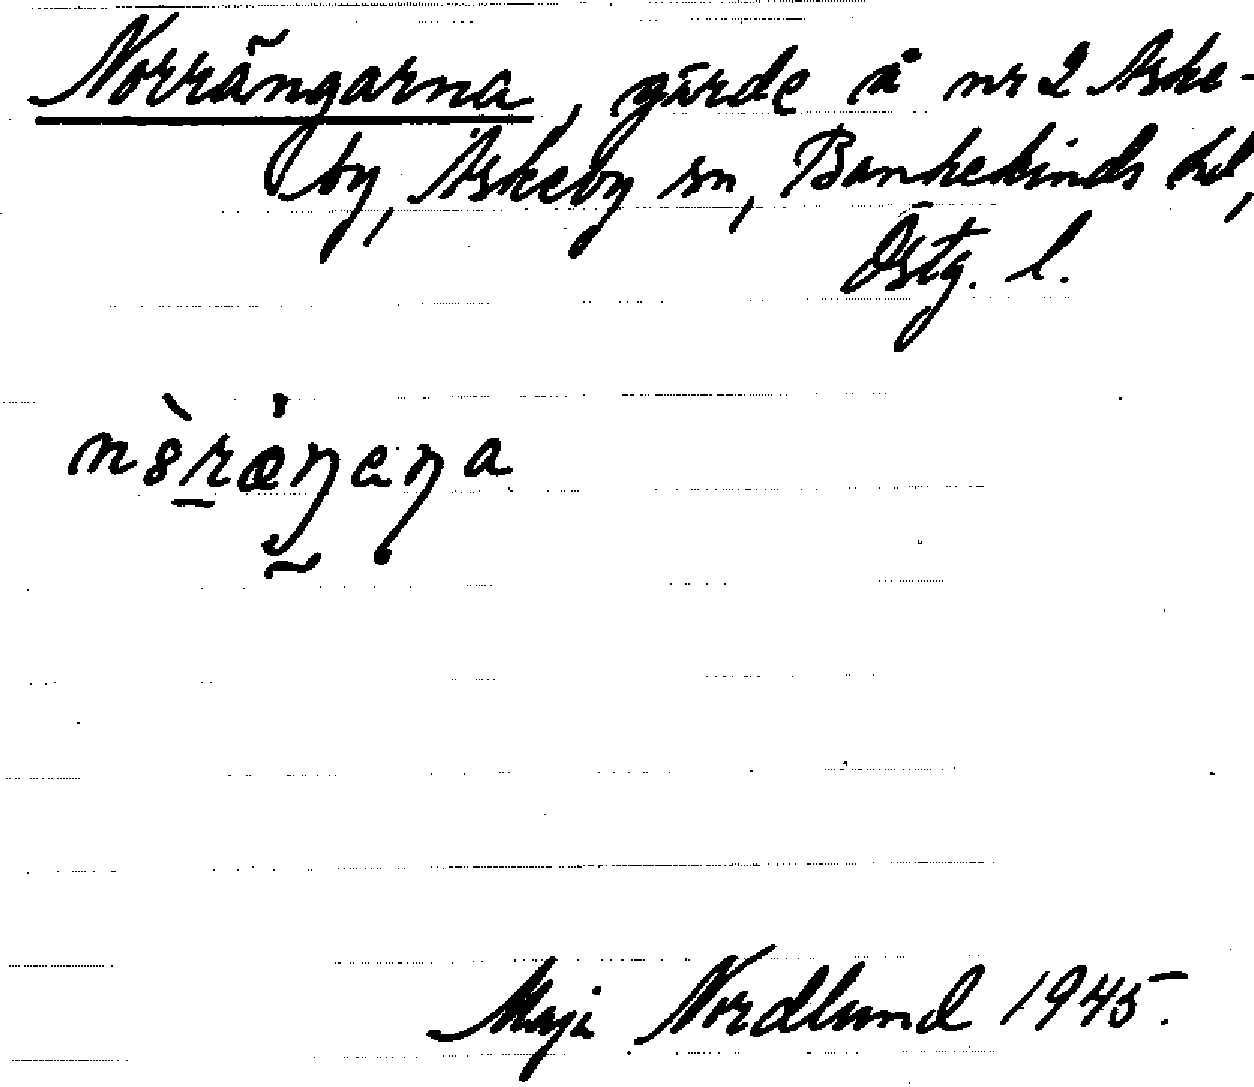 Norrängarna, gärde å nr 2 Aske-
by, Askeby sn, Bankekinds hd,
Östg. l.
Maja Nordlund 1945.